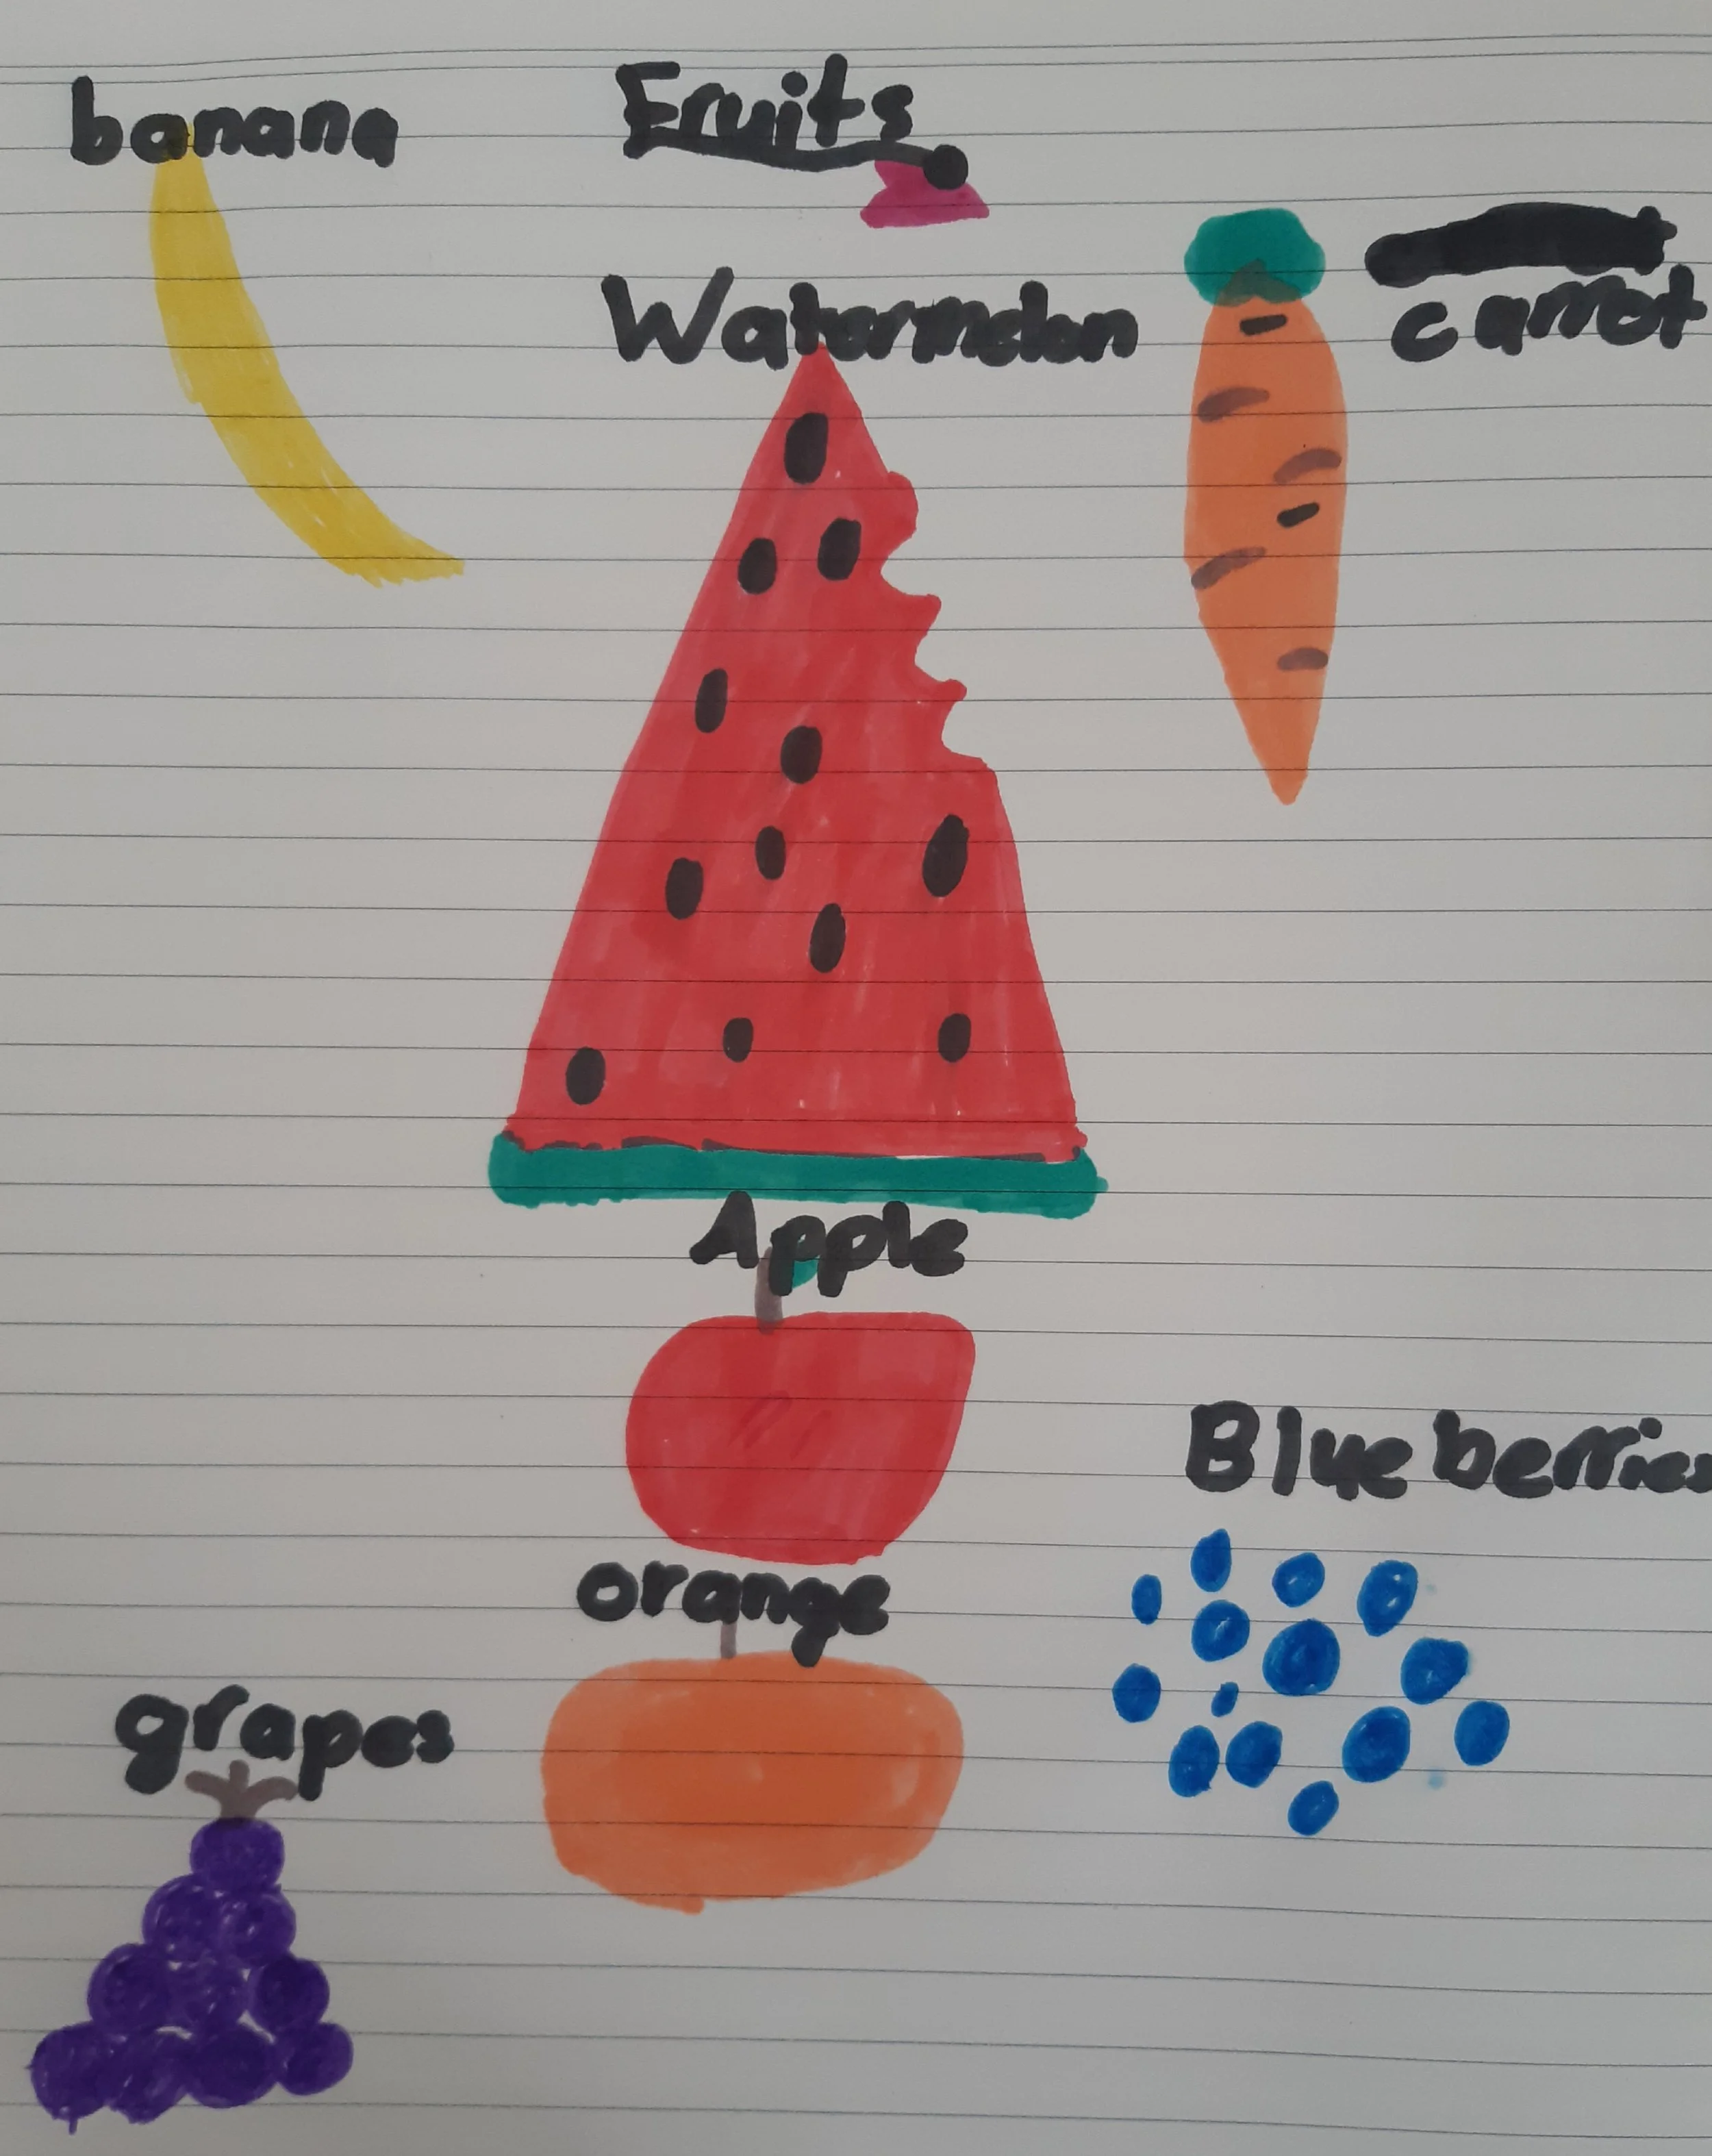 Fruits
banana
Watermelon
carrot
Apple
Blueberries
orange
grapes